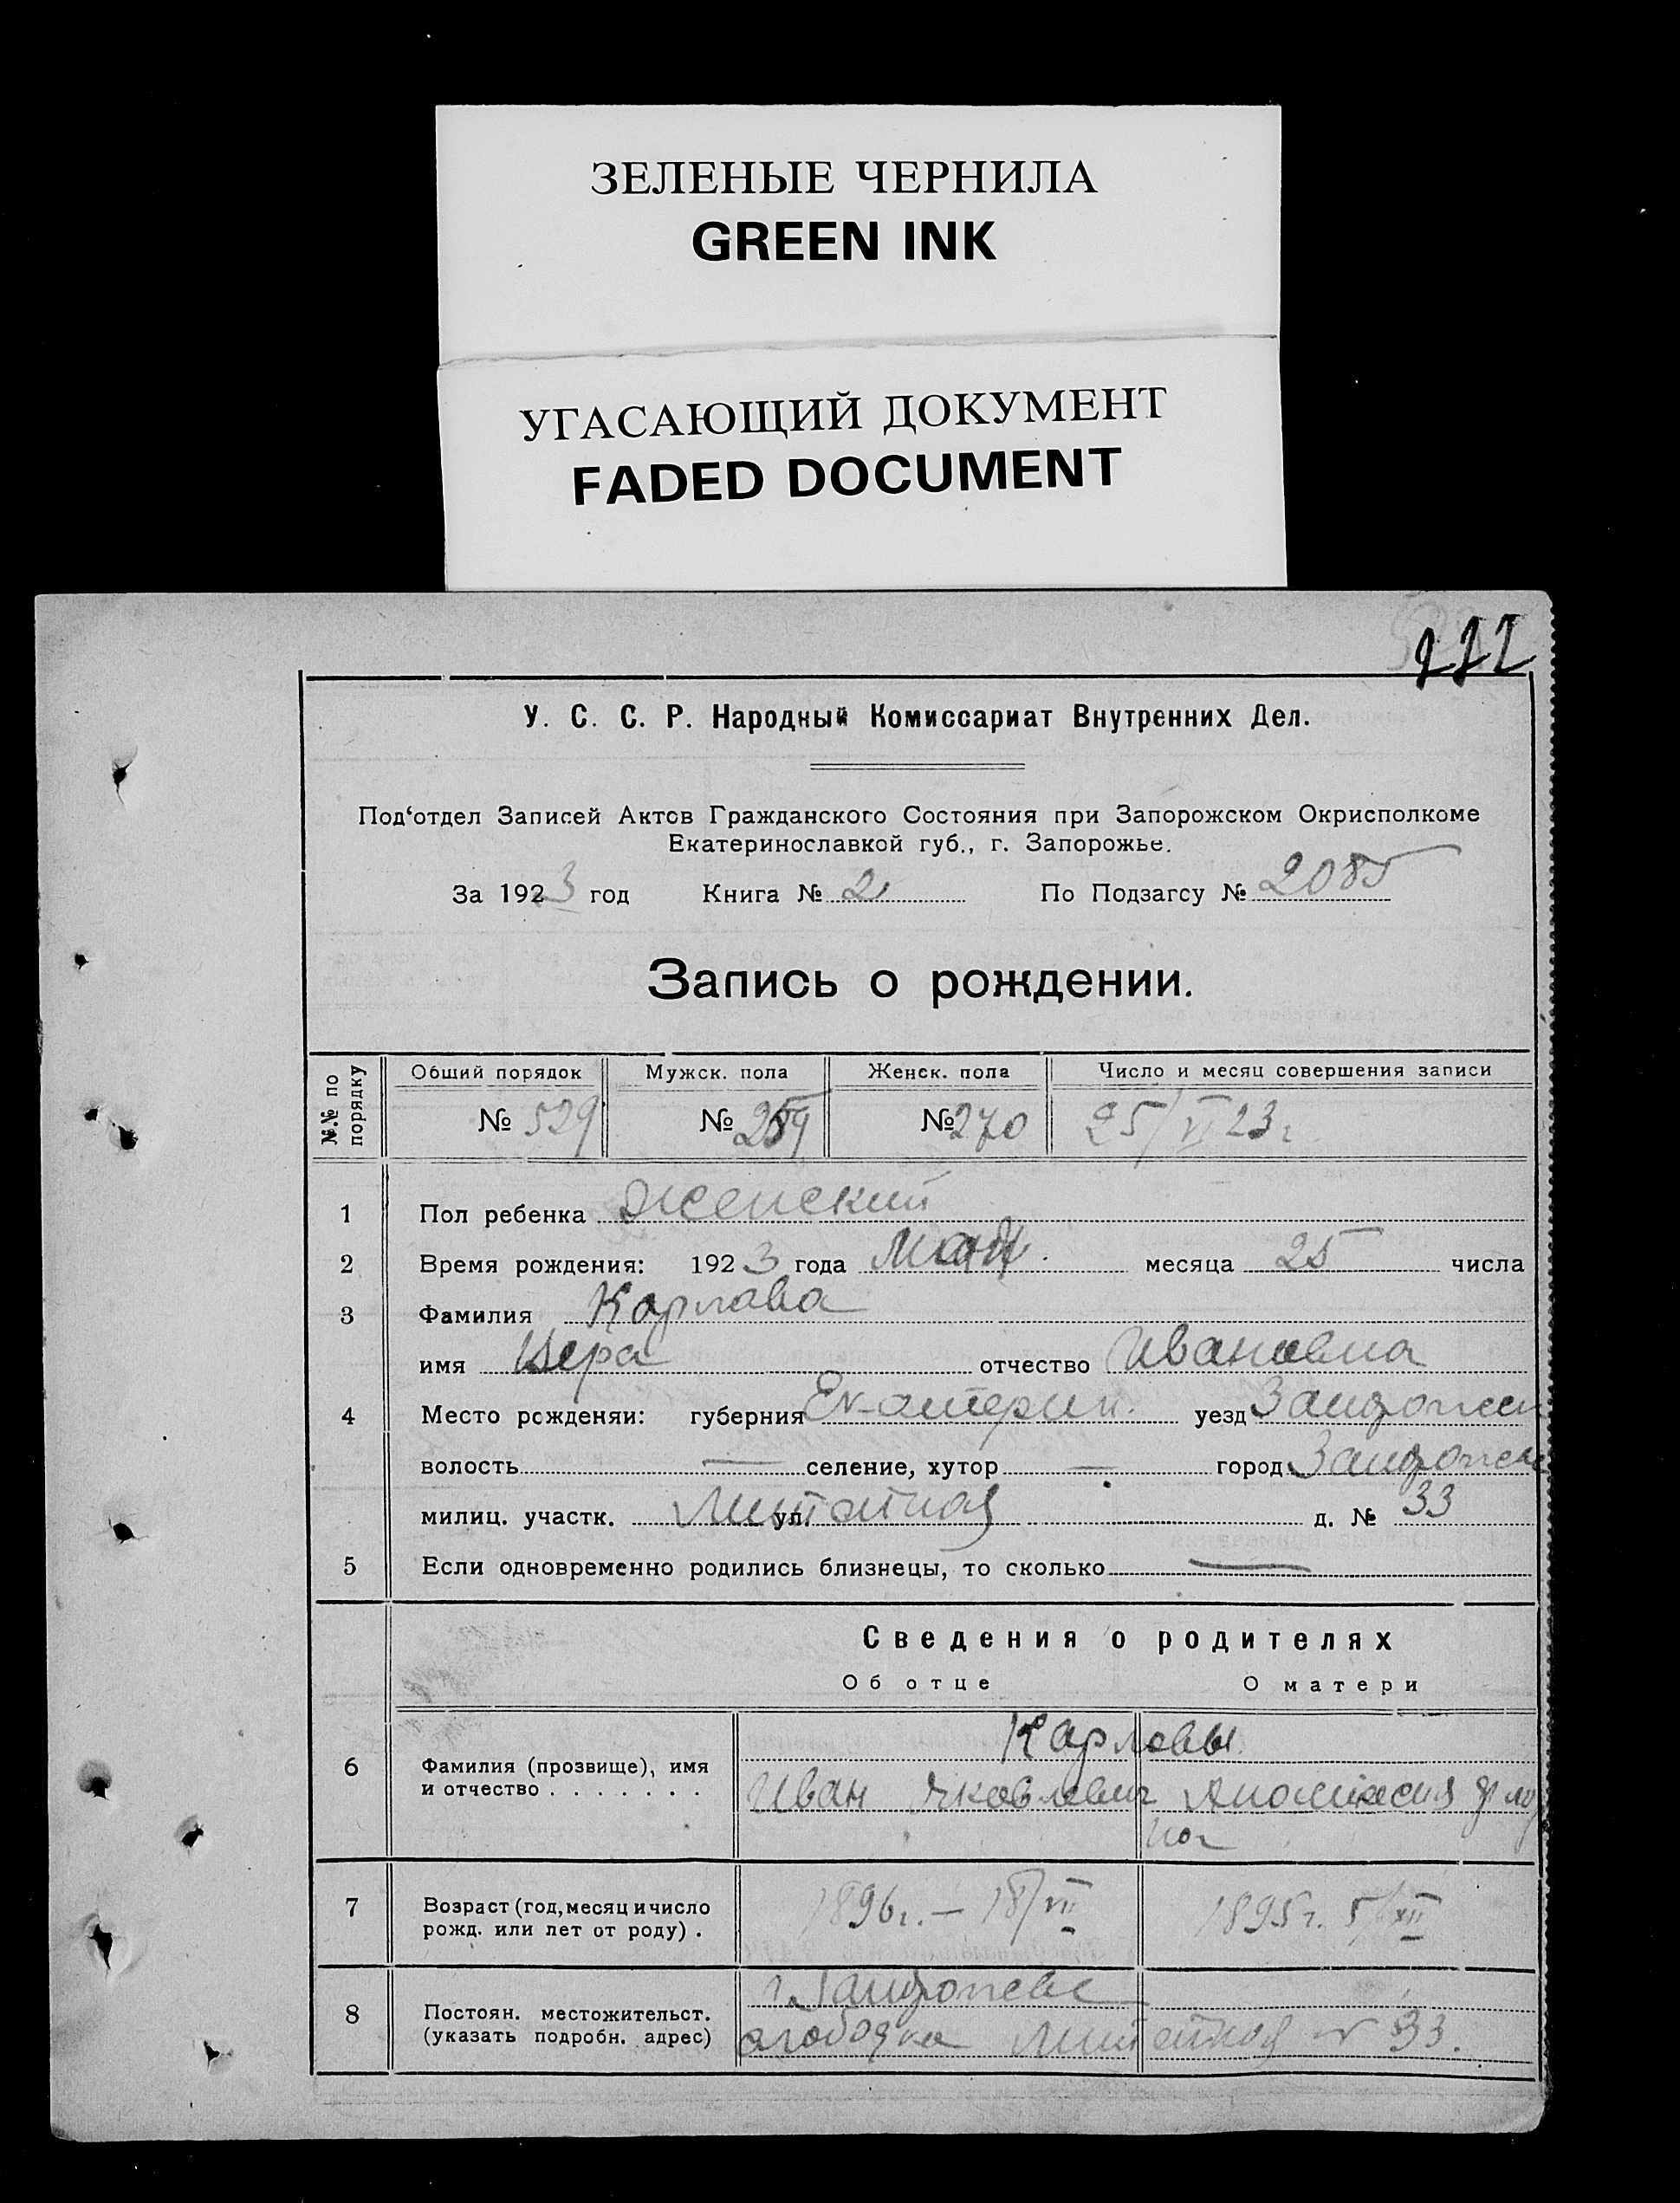 ЗЕЛЕНЫЕ ЧЕРНИЛА
GREEN INK
УГАСАЮЩИЙ ДОКУМЕНТ
FADED DOCUMENT
У. С. С. Р. Народный Комиссариат Внутренних Дел.
Под‘отдел Записей Актов Гражданского Состояния при Запорожском Окрисполкоме
Екатеринославкой губ., г. Запорожье.
За 1923 год Книга № 2 По Подзагсу № 2085
Запись о рождении.
№.№ по порядку Общий порядок Мужск. пола Женск. пола Число и месяц совершения записи
№ 529 № 259 № 270 25/VI 23 г
1 Пол ребенка Женский
2 Время рождения: 1923 года мая месяца 25 числа
3 Фамилия Карлова
имя Вера отчество Ивановна
4 Место рождения: губерния Екатерин. уезд Запорожск
волость — селение, хутор — город Запорожье
милиц. участк. ул. д. № 33
5 Если одновременно родились близнецы, то сколько —
Сведения о родителях
Об отце О матери
Карловы
6 Фамилия (прозвище), имя и отчество . . . . . . . Иван Яковлевич Анастасия
7 Возраст (год, месяц и число рожд. или лет от роду) . 1896 г. — 18/VII 1895 г. 5/XII
8 Постоян. местожительст. (указать подробн. адрес) г. Запорожье
слободка № 33.